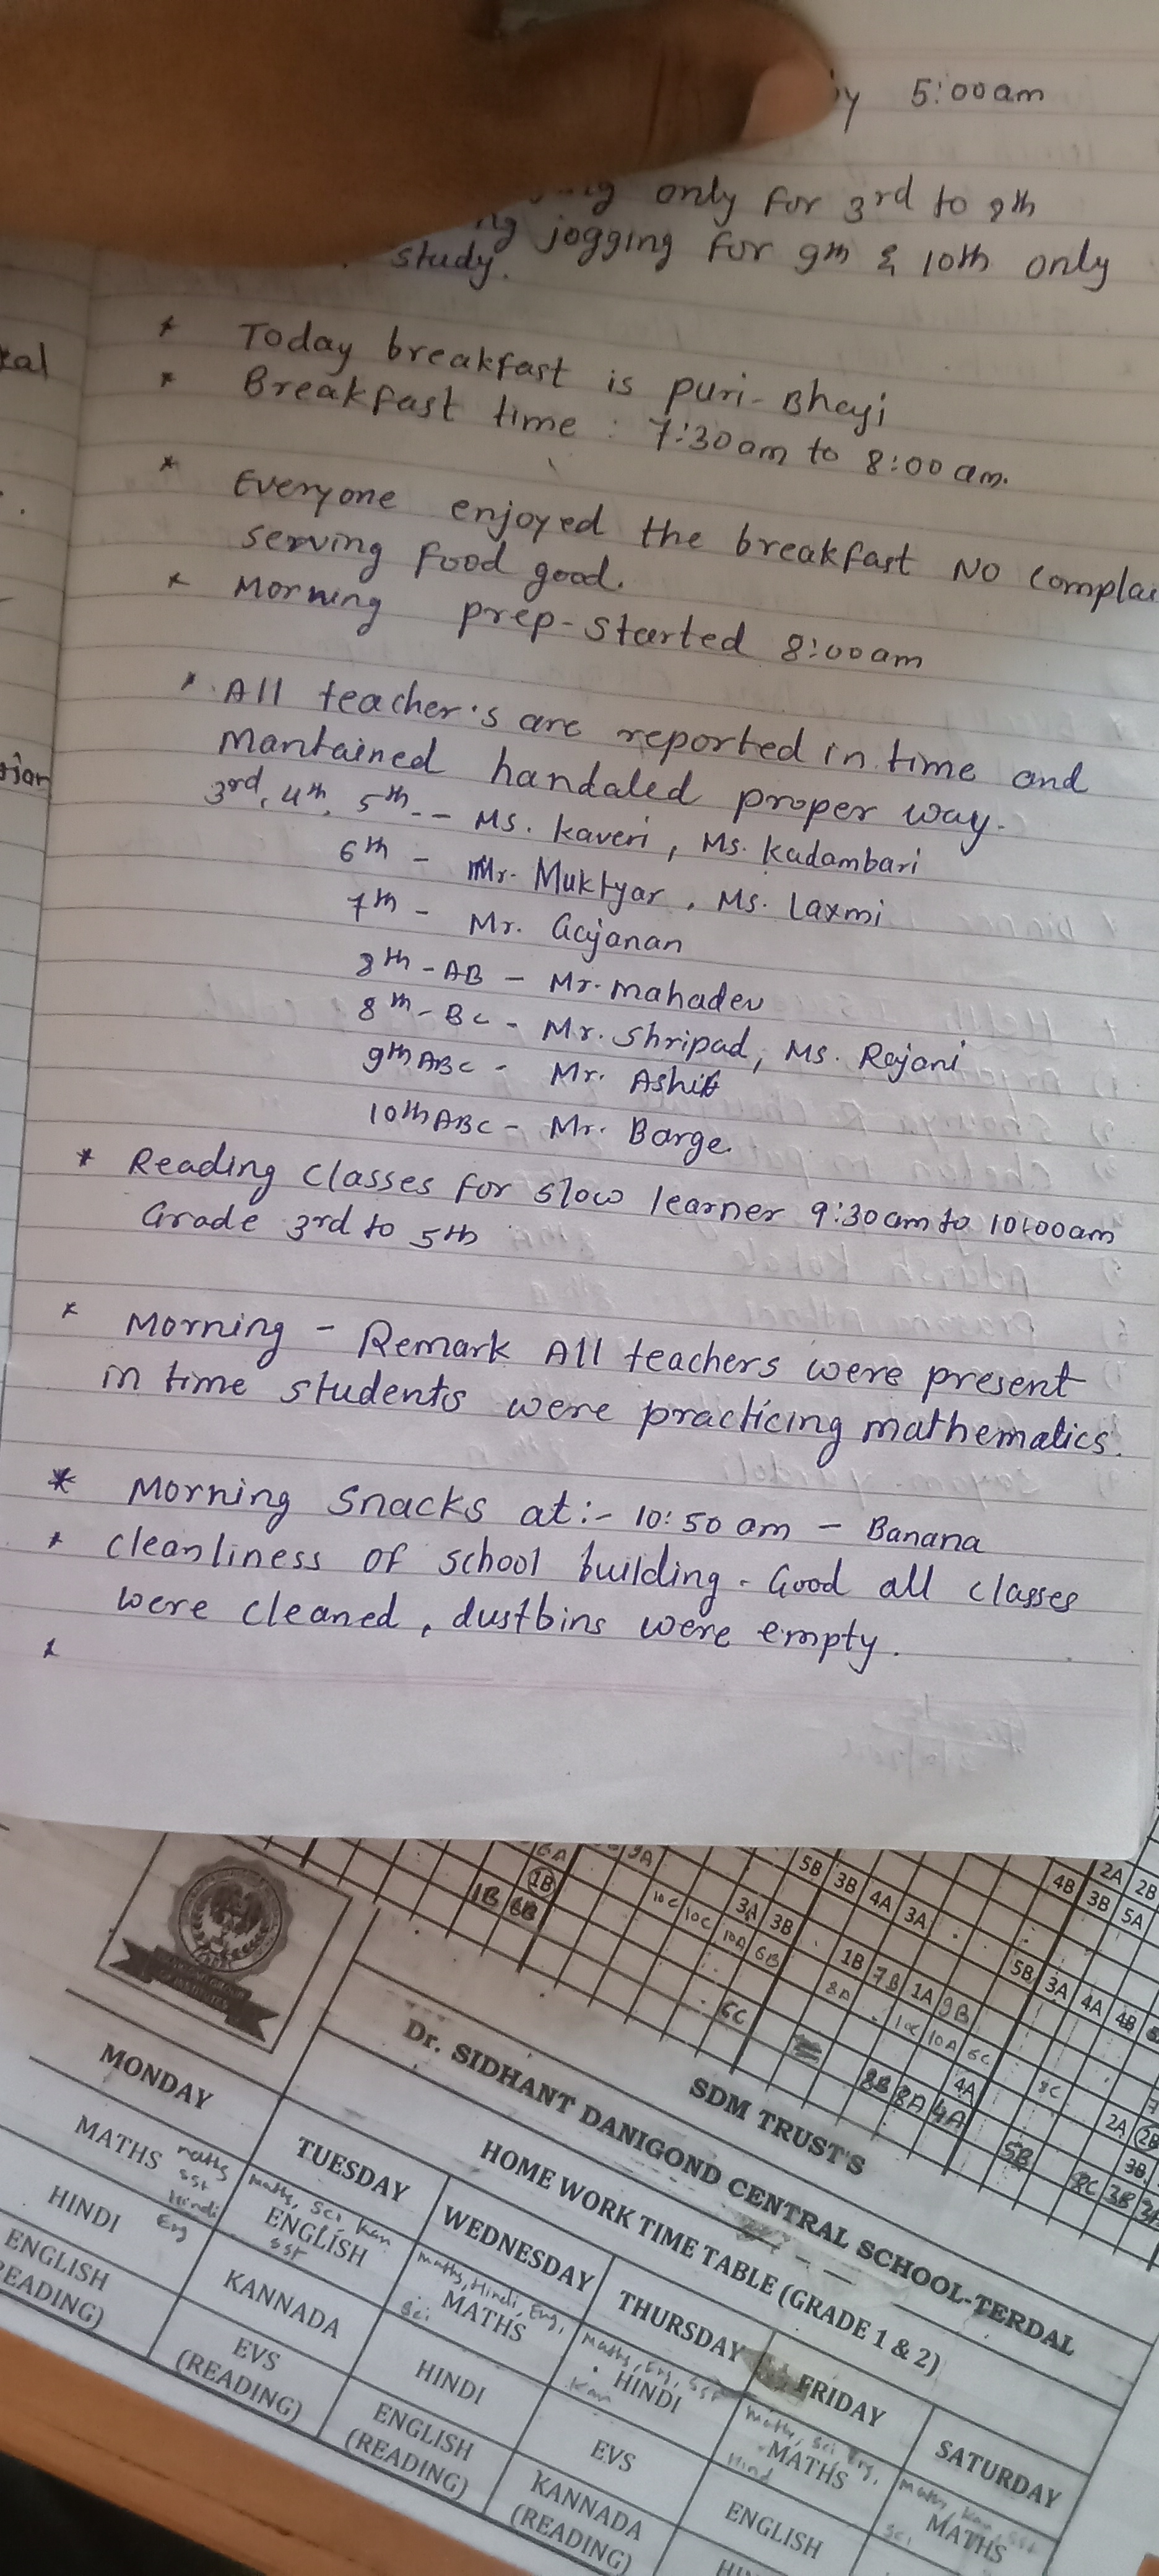 5:00am
only for 3rd to 8th
jogging for 9th & 10th only
study.
* Today breakfast is puri-Bhaji
* Breakfast time : 7:30am to 8:00am.
* Everyone enjoyed the breakfast No complai
serving food good.
* Morning prep-started 8:00am
* All teacher's are reported in time and
mantained handaled proper way.
3rd, 4th, 5th -- Ms. Kaveri, Ms. Kadambari
6th - Mr. Muktyar, Ms. Laxmi
7th - Mr. Gajanan
8th - AB - Mr. mahadev
8th - BC - Mr. Shripad, Ms. Rajani
9th ABC - Mr. Ashif
10th ABC - Mr. Barge.
* Reading classes for slow learner 9:30am to 10:00am
Grade 3rd to 5th
* Morning - Remark All teachers were present
in time students were practicing mathematics.
* Morning Snacks at:- 10:50 am - Banana
* cleanliness of school building - Good all classes
were cleaned, dustbins were empty.
*
6A 9A 5B 3B 4A 3A 4B 3B 5A 2A 2B
1B 6B 1B 10C 10C 10A 6B 3A 3B 1B 7B 1A 9B 5B 3A 4A 4B
6C 8A 10C 10A 6C 8C 2A 2B
8B 8A 4A 4A 5B 8C 3B 3B
SDM TRUST'S
Dr. SIDHANT DANIGOND CENTRAL SCHOOL-TERDAL
HOME WORK TIME TABLE (GRADE 1 & 2)
MONDAY TUESDAY WEDNESDAY THURSDAY FRIDAY SATURDAY
maths sst Hindi Eng maths, sci, kan sst maths, Hindi, Eng, sci maths, Eng, sst kan maths, sci, Eng, Hind
MATHS ENGLISH MATHS HINDI MATHS MATHS
HINDI KANNADA HINDI EVS ENGLISH
ENGLISH (READING) EVS (READING) ENGLISH (READING) KANNADA (READING)